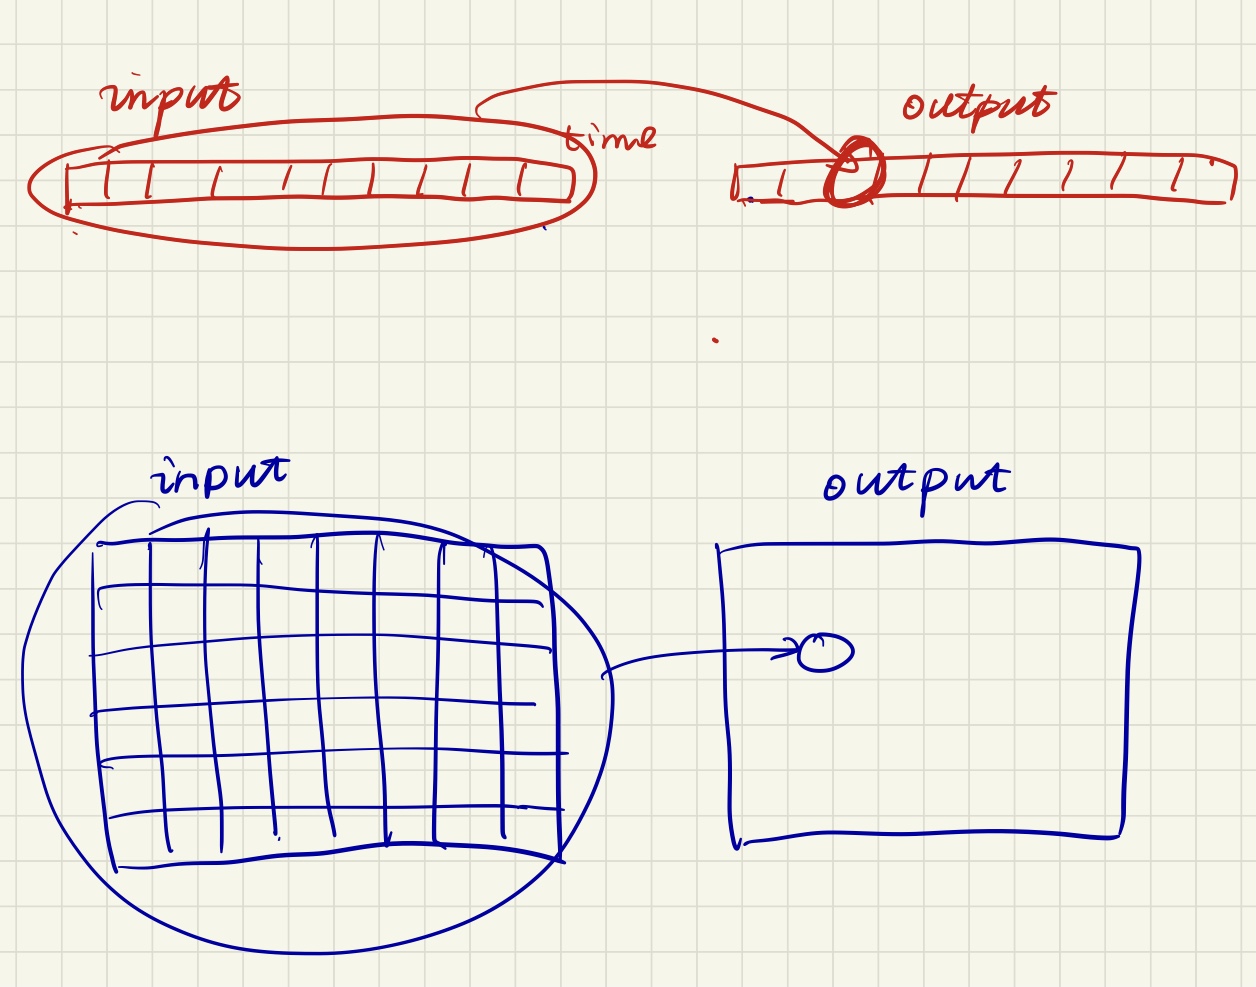 input
time
output
input
output